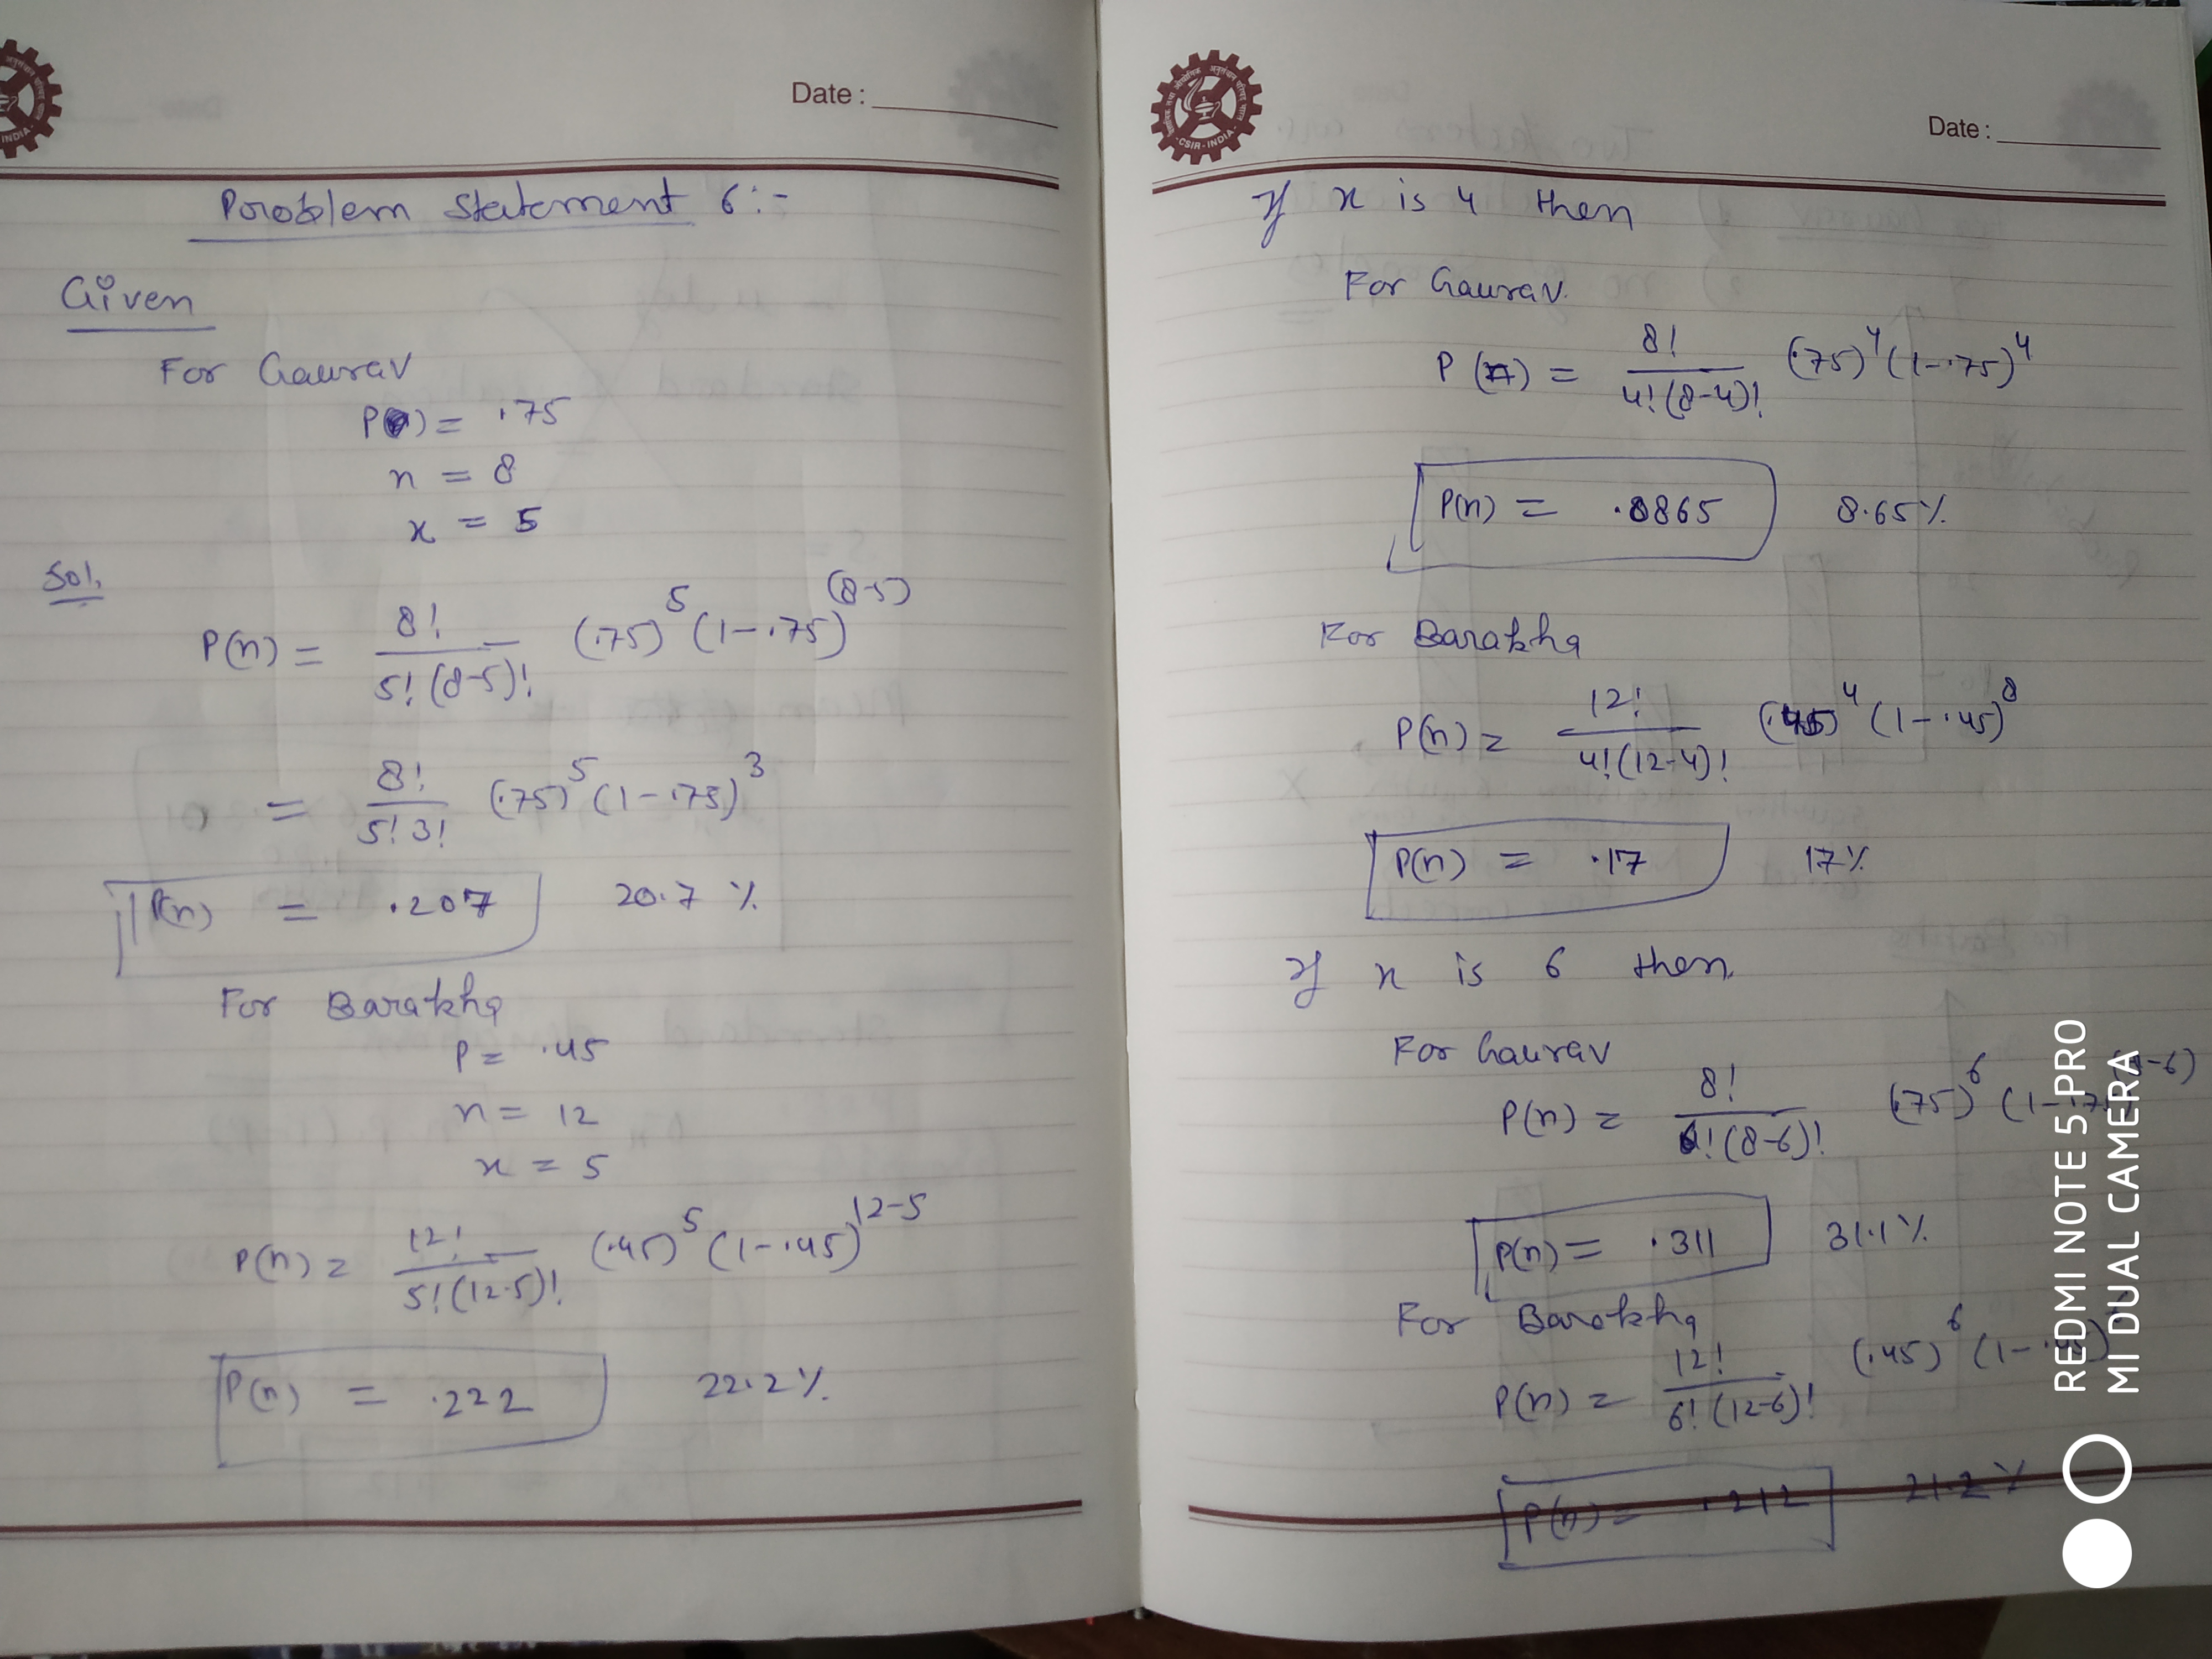 Date :
Problem Statement 6 :-
Given
For Gaurav
P(n) = .75
n = 8
x = 5
Sol.
P(n) = 8! / 5! (8-5)! (.75)^5 (1-.75)^(8-5)
= 8! / 5! 3! (.75)^5 (1-.75)^3
P(n) = .207 20.7 %
For Barakha
P = .45
n = 12
x = 5
P(n) = 12! / 5! (12-5)! (.45)^5 (1-.45)^12-5
P(n) = .222 22.2 %
CSIR-INDIA
Date :
If x is 4 then
For Gaurav
P(n) = 8! / 4! (8-4)! (.75)^4 (1-.75)^4
P(n) = .8865 8.65 %
For Barakha
P(n) = 12! / 4! (12-4)! (.45)^4 (1-.45)^8
P(n) = .17 17 %
If x is 6 then
For Gaurav
P(n) = 8! / 6! (8-6)! (.75)^6 (1-.75)^(8-6)
P(n) = .311 31.1 %
For Barakha
P(n) = 12! / 6! (12-6)! (.45)^6 (1-.45)
P(n) = .212 21.2 %
REDMI NOTE 5 PRO
MI DUAL CAMERA